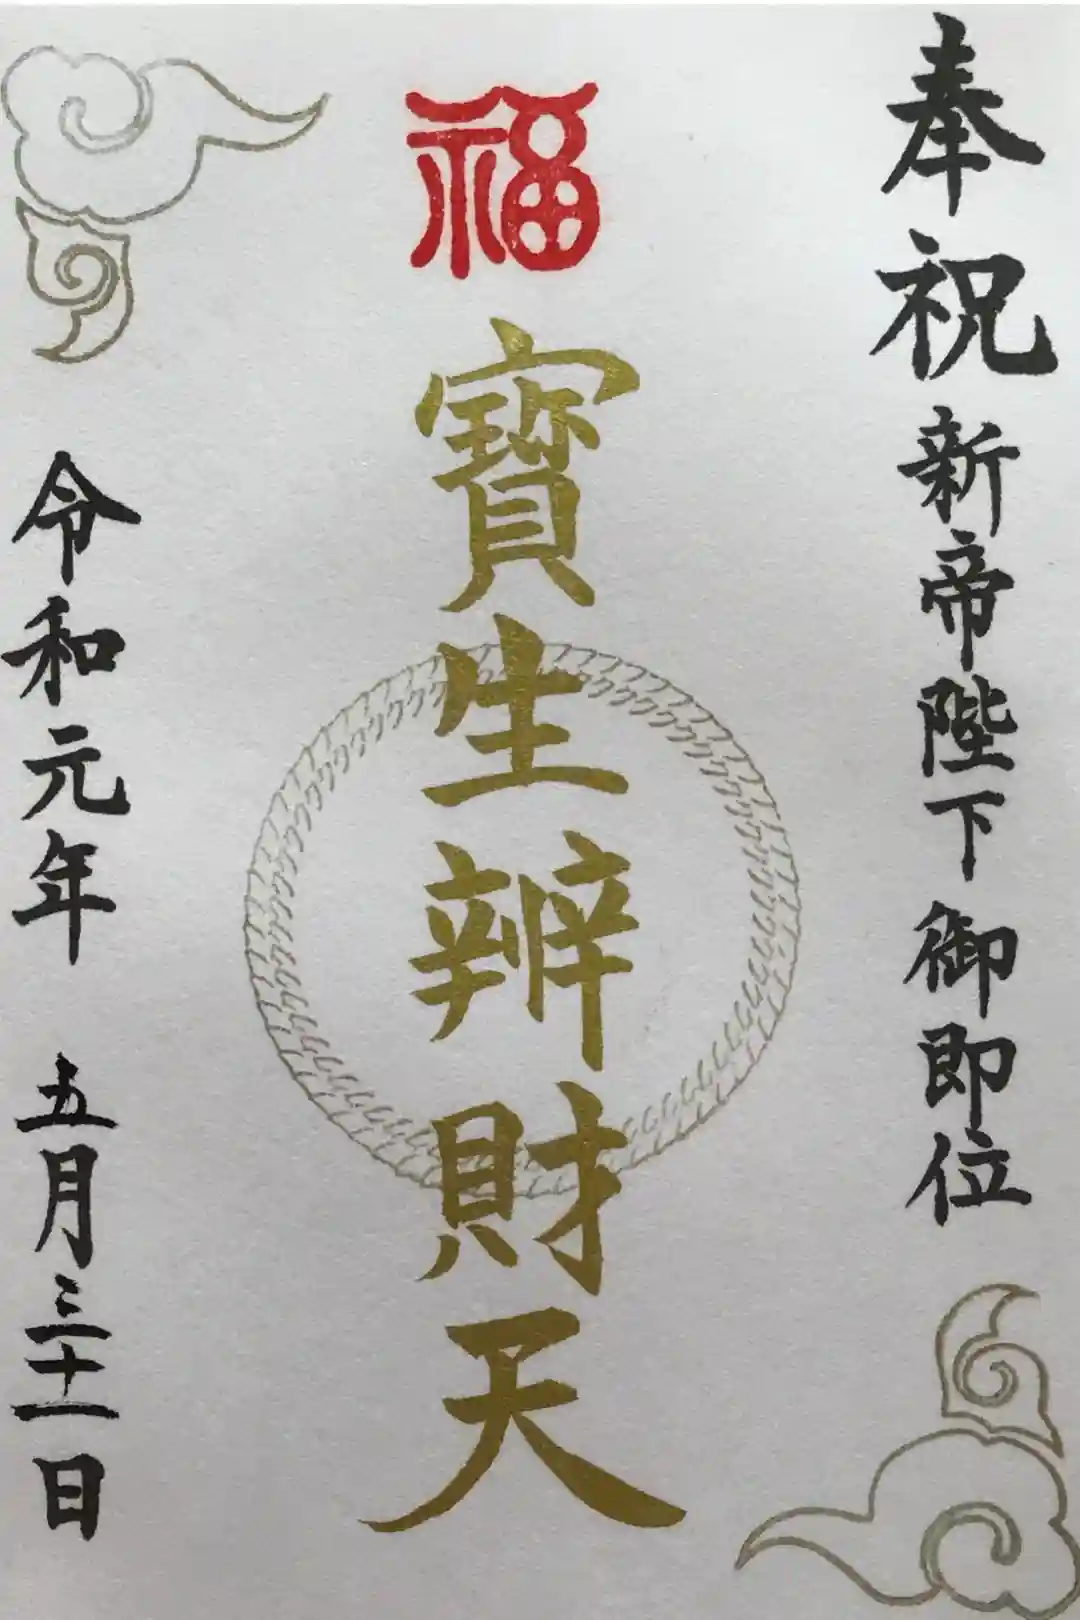 奉祝新帝陛下御即位
福
寳生辨財天
令和元年 五月三十一日